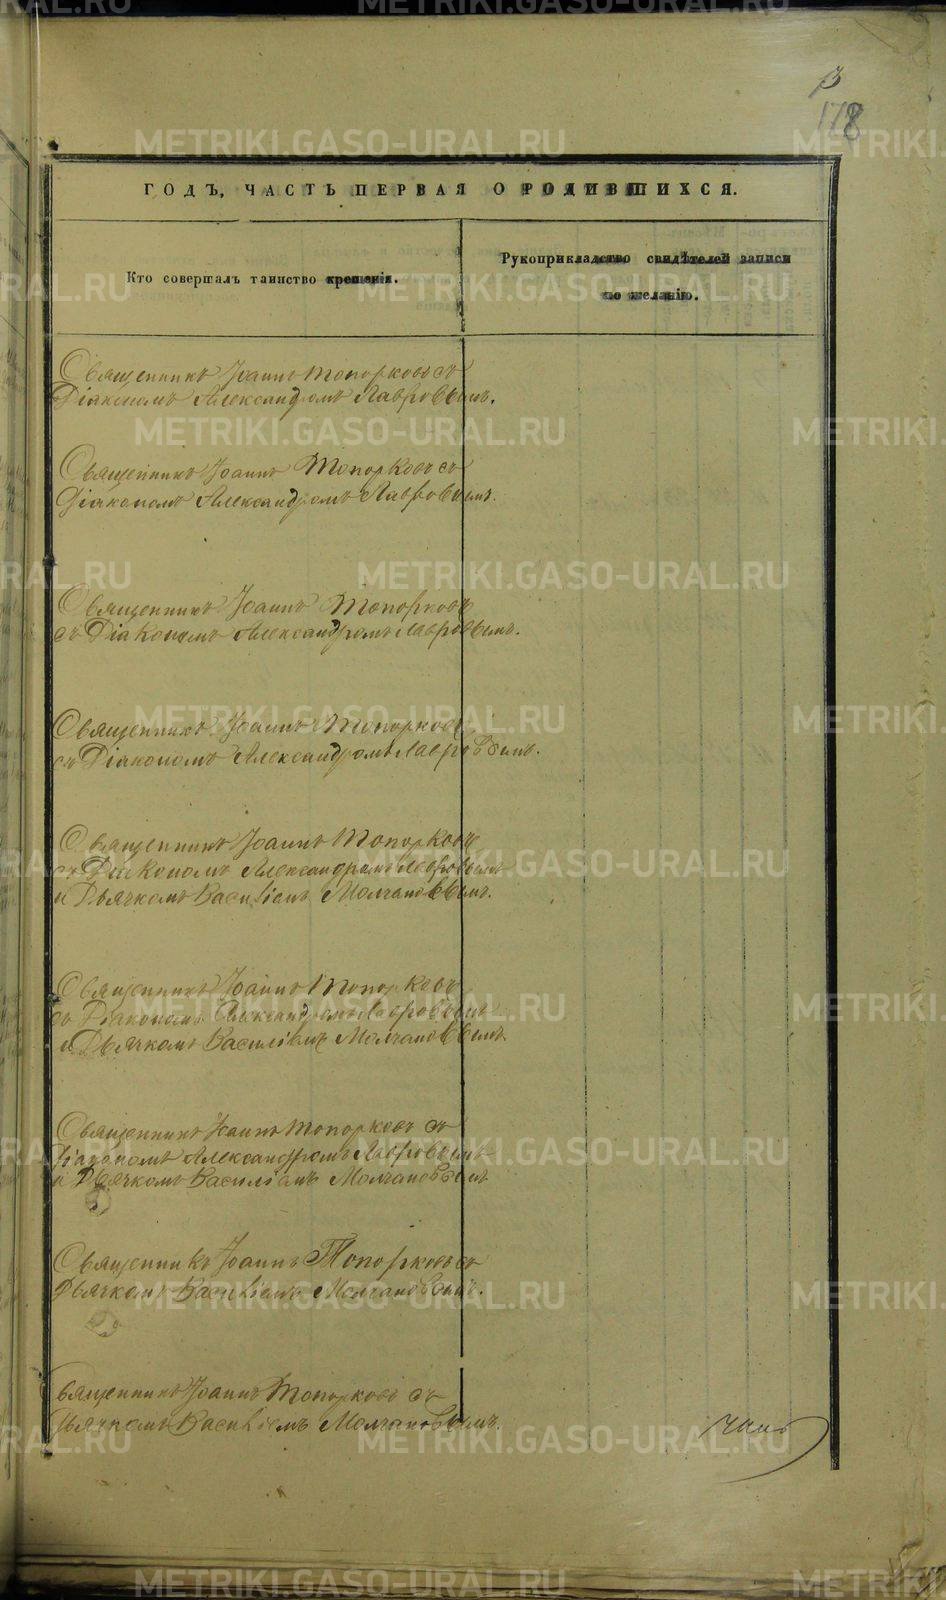 3
178
ГОДЪ, ЧАСТЬ ПЕРВАЯ О РОДИВШИХСЯ.
Кто совершалъ таинство крещенія.
Рукоприкладство свидѣтелей записи
по желанію.
Священникъ Іоаннъ Топорковъ съ
Діакономъ Александромъ Лавровымъ.
Священникъ Іоаннъ Топорковъ съ
Діакономъ Александромъ Лавровымъ.
Священникъ Іоаннъ Топорковъ
съ Діакономъ Александромъ Лавровымъ.
Священникъ Іоаннъ Топорковъ
съ Діакономъ Александромъ Лавровымъ.
Священникъ Іоаннъ Топорковъ
съ Діакономъ Александромъ Лавровымъ
и Дьячкомъ Василіемъ Молчановымъ.
Священникъ Іоаннъ Топорковъ
съ Діакономъ Александромъ Лавровымъ
и Дьячкомъ Василіемъ Молчановымъ.
Священникъ Іоаннъ Топорковъ съ
Діакономъ Александромъ Лавровымъ
и Дьячкомъ Василіемъ Молчановымъ
Священникъ Іоаннъ Топорковъ съ
Дьячкомъ Василіемъ Молчановымъ.
Священникъ Іоаннъ Топорковъ съ
Дьячкомъ Василіемъ Молчановымъ.
METRIKI.GASO-URAL.RU